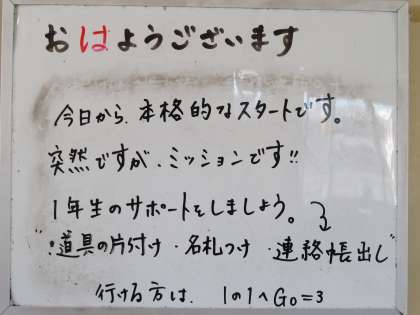 おはようございます
今日から、本格的なスタートです。
突然ですが、ミッションです!!
1年生のサポートをしましょう。
道具の片付け・名札つけ・連絡帳出し
行ける方は、1の1へGo=3